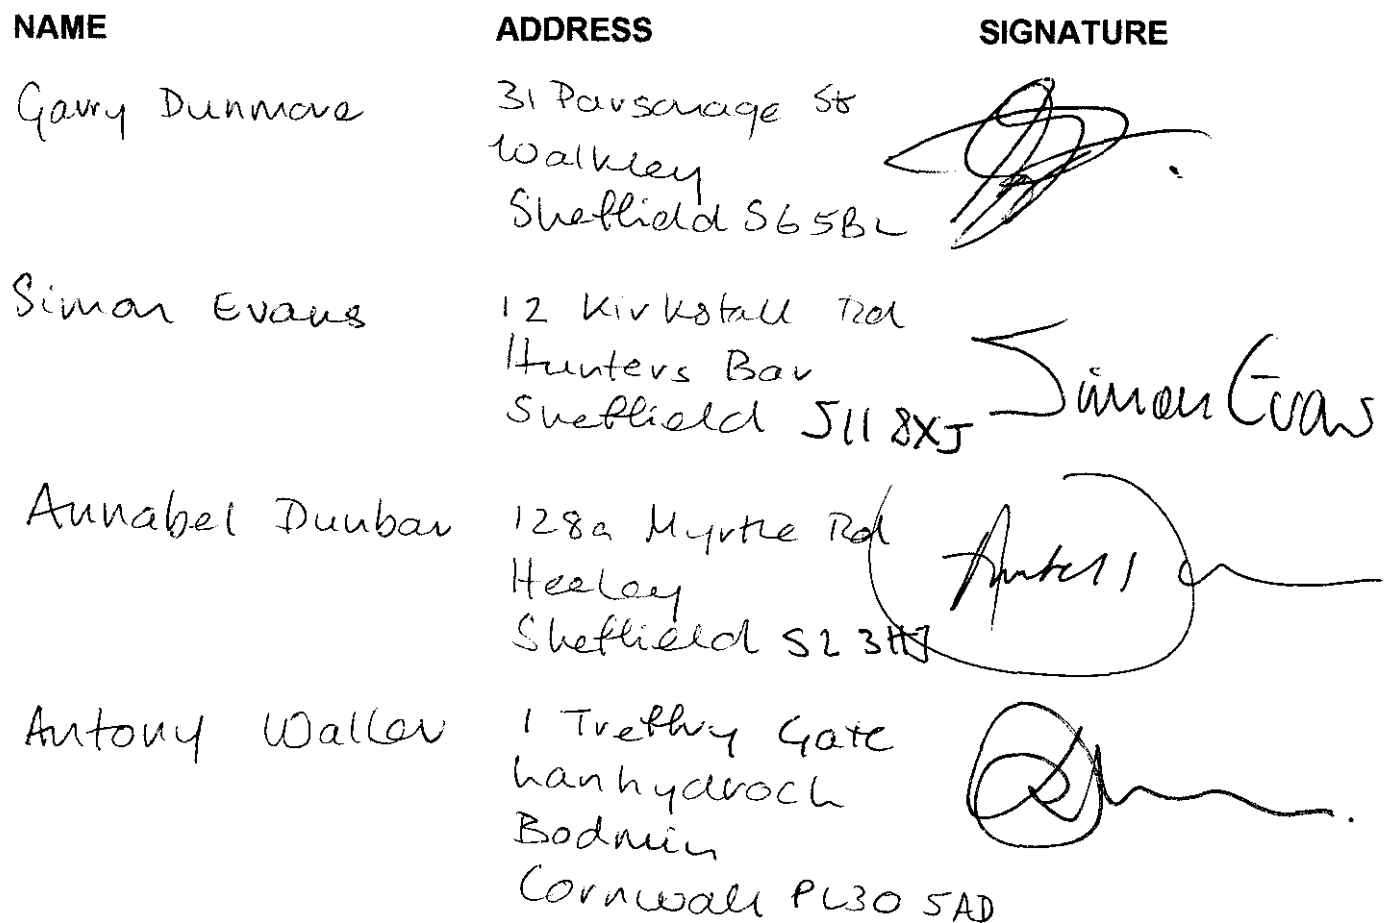 NAME ADDRESS SIGNATURE
Garry Dunmore 31 Parsonage St
Walkley
Sheffield S6 5BL
Simon Evans 12 Kirkstall Rd
Hunters Bar
Sheffield S11 8XJ Simon Evans
Annabel Dunbar 128a Myrtle Rd
Heeley
Sheffield S2 3HJ
Antony Waller 1 Treffry Gate
Lanhydroch
Bodmin
Cornwall PL30 5AD